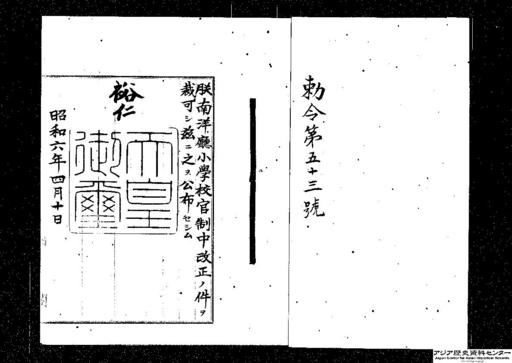 勅令第五十三號
朕南洋廳小學校官制中改正ノ件ヲ
裁可シ茲ニ之ヲ公布セシム
裕仁
天皇
御璽
昭和六年四月十日
アジア歴史資料センター
Japan Center for Asian Historical Records